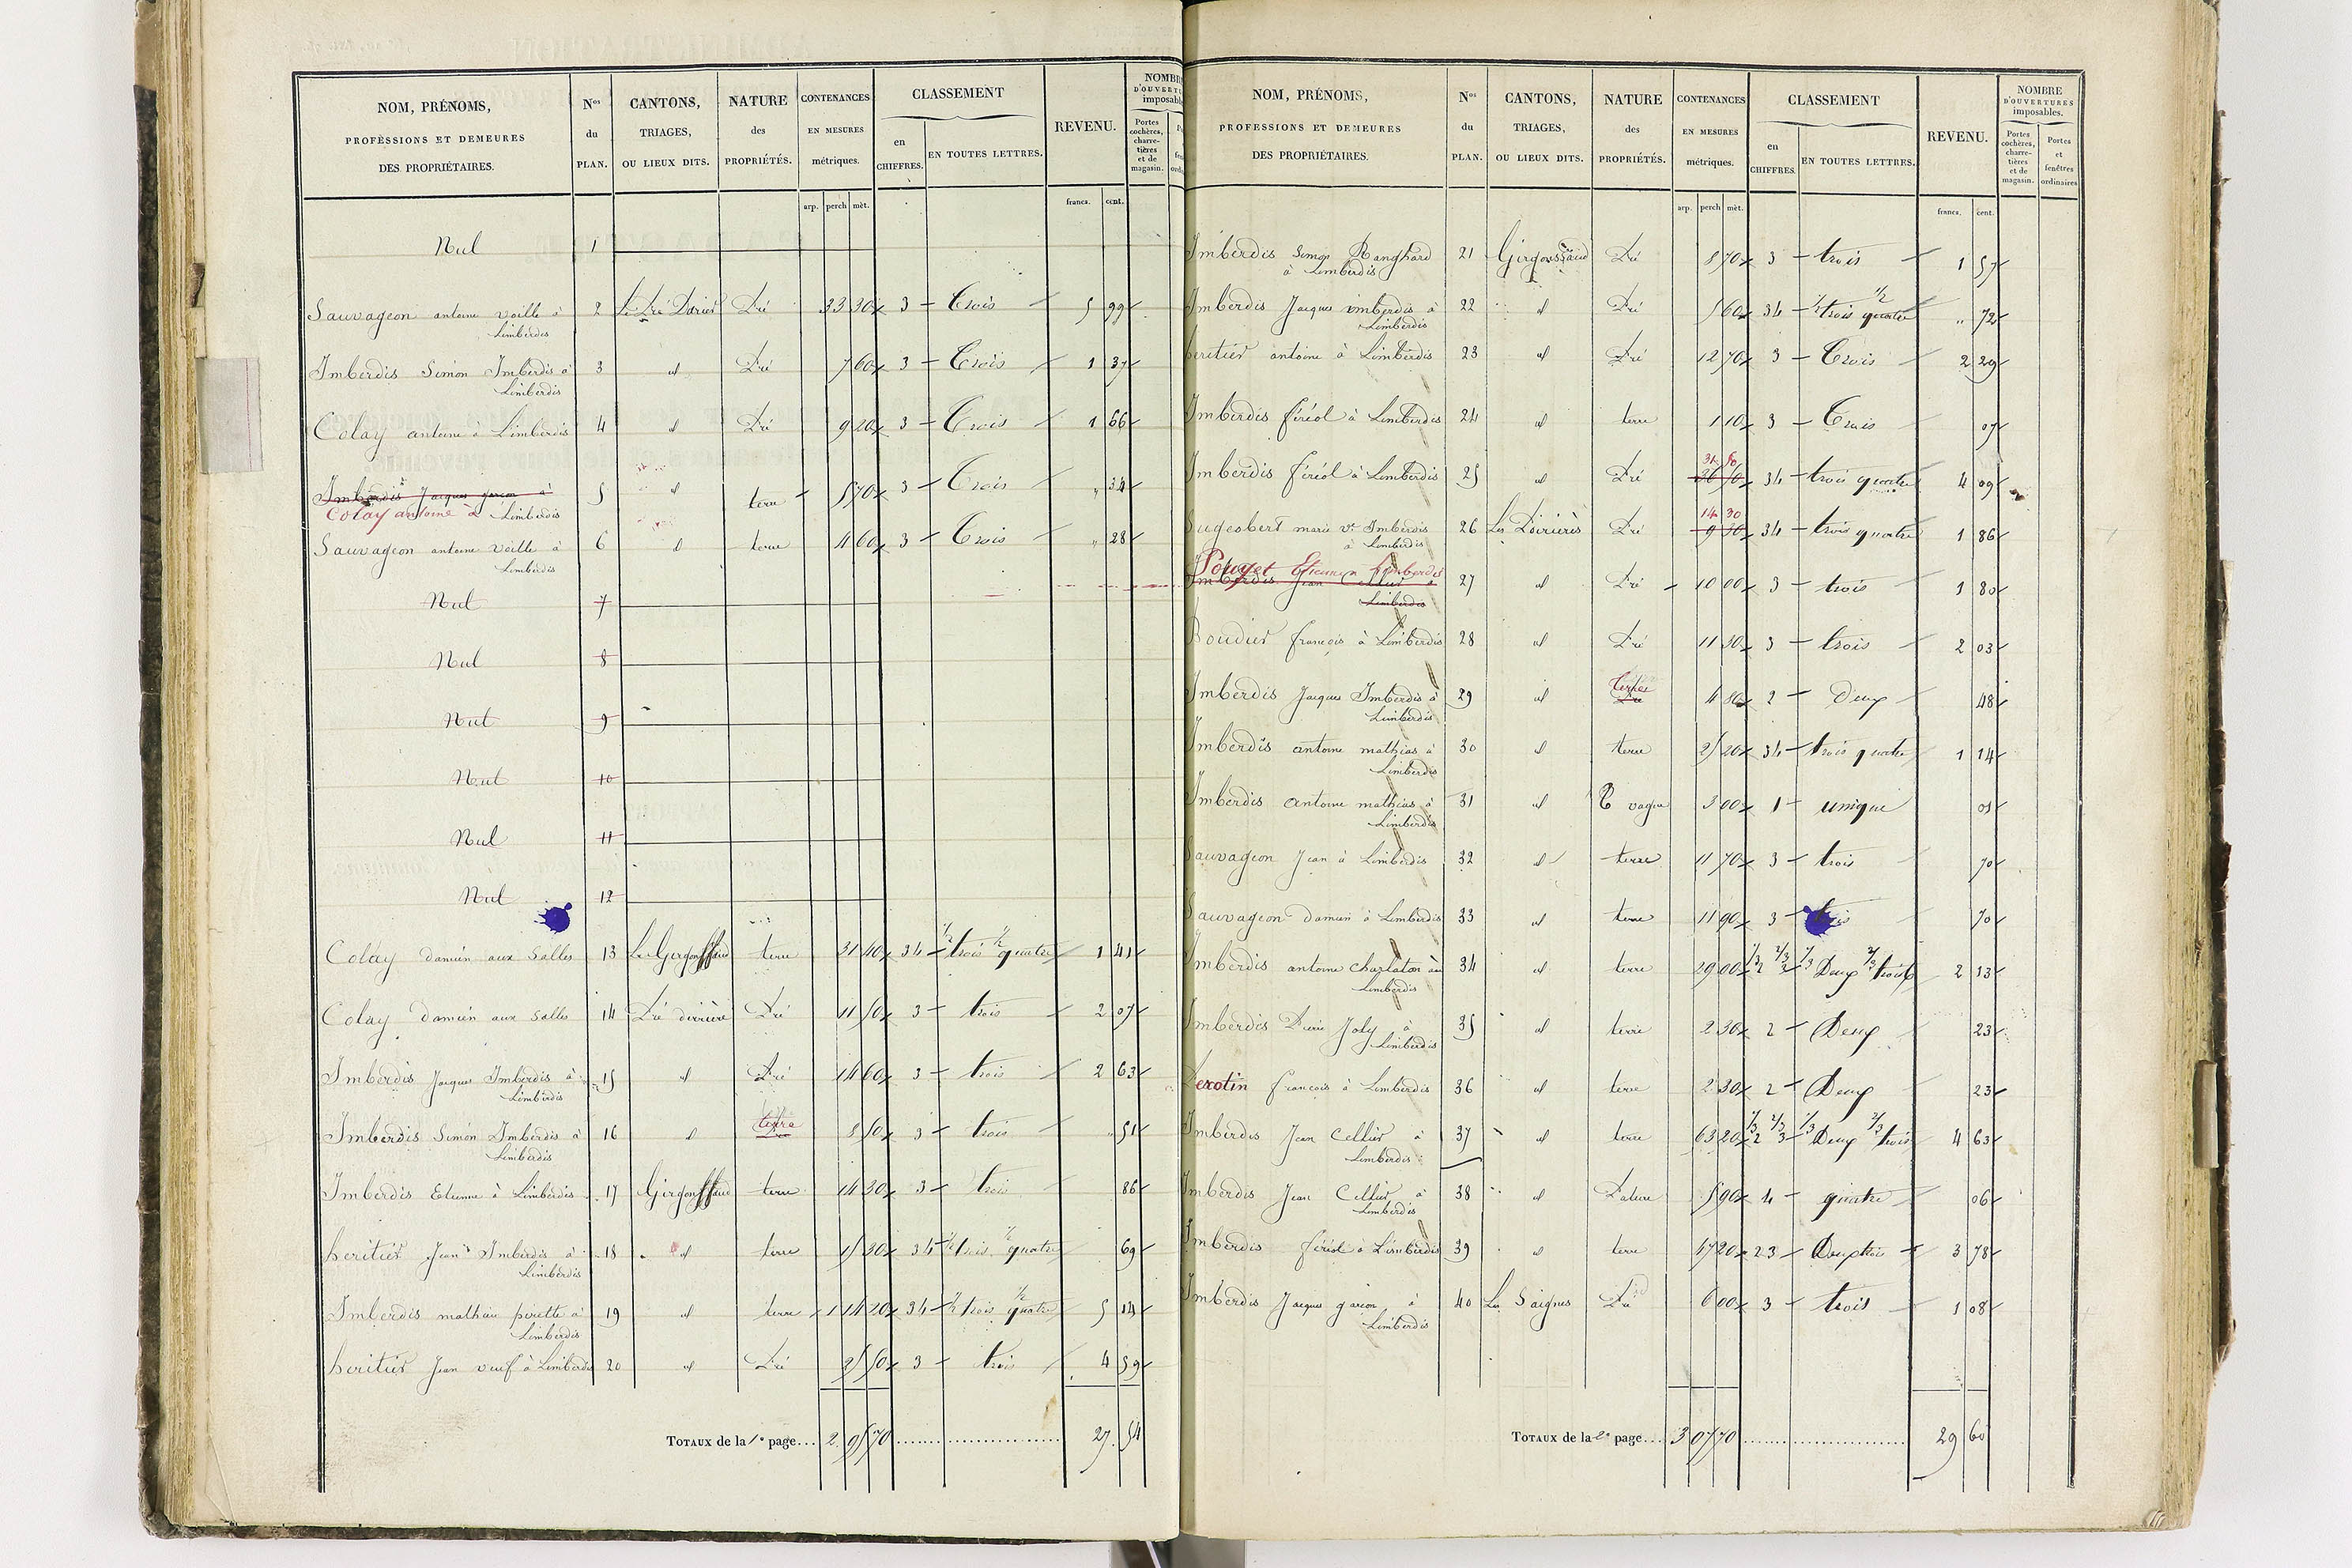 NOM, PRÉNOMS, PROFESSIONS ET DEMEURES DES PROPRIÉTAIRES. | Nos du PLAN. | CANTONS, TRIAGES, OU LIEUX DITS. | NATURE des PROPRIÉTÉS. | CONTENANCES EN MESURES métriques. | CLASSEMENT en CHIFFRES. | EN TOUTES LETTRES. | REVENU. | NOMBRE D'OUVERTU imposabl Portes cochères, charretières et de magasin.
arp. perch mèt. francs. cent.
Nul 1
Sauvageon antoine voille à Limberdis 2 Le Pré Darier Pré 33 30 3 Trois 5 99
Imberdis Simon Imberdis à Limberdis 3 id Pré 7 60 3 Trois 1 37
Colay antoine à Limberdis 4 id Pré 9 20 3 Trois 1 66
Imberdis Jacques garcon à Limberdis 5 id terre 5 70 3 Trois " 34
Colay antoine à
Sauvageon antoine voille à Limberdis 6 id terre 4 60 3 Trois " 28
Nul 7
Nul 8
Nul 9
Nul 10
Nul 11
Nul 12
Colay damien aux Salles 13 Le Girgonffaud terre 31 40 34 1/2 trois 1/2 quatre 1 41
Colay damien aux Salles 14 Pré derrière Pré 11 50 3 trois 2 07
Imberdis Jacques Imberdis à Limberdis 15 id Pré 14 60 3 trois 2 63
Imberdis Simon Imberdis à Limberdis 16 id terre 8 50 3 trois " 51
Imberdis Etienne à Limberdis 17 Girgonffaud terre 14 30 3 trois 86
heritier Jean Imberdis à Limberdis 18 id terre 15 30 34 1/2 trois 1/2 quatre 69
Imberdis mathieu perette à Limberdis 19 id terre 1 14 20 34 1/2 trois 1/2 quatre 5 14
heritier Jean veuf à Limberdis 20 id Pré 25 50 3 trois 4 59
TOTAUX de la 1e page... 2 95 70 27 54
NOM, PRÉNOMS, PROFESSIONS ET DEMEURES DES PROPRIÉTAIRES. | Nos du PLAN. | CANTONS, TRIAGES, OU LIEUX DITS. | NATURE des PROPRIÉTÉS. | CONTENANCES EN MESURES métriques. | CLASSEMENT en CHIFFRES. | EN TOUTES LETTRES. | REVENU. | NOMBRE D'OUVERTURES imposables. Portes cochères, charretières et de magasin. | Portes et fenêtres ordinaires
arp. perch mèt. francs. cent.
Imberdis Simon Ranghard à Limberdis 21 Girgonffaud Pré 8 70 3 trois 1 57
Imberdis Jacques imberdis à Limberdis 22 id Pré 5 60 34 1/2 trois 1/2 quatre " 72
heritier antoine à Limberdis 23 id Pré 12 70 3 Trois 2 29
Imberdis féréol à Limberdis 24 id terre 1 10 3 Trois 07
Imberdis féréol à Limberdis 25 id Pré 31 50 34 trois quatre 4 09
Sugesbert marie ve Imberdis à Limberdis 26 Les Poirières Pré 14 30 9 30 34 trois quatre 1 86
Pouget Etienne a Limberdis
Imberdis Jean Cellier à Limberdis 27 id Pré 10 00 3 trois 1 80
Boudier françois à Limberdis 28 id Pré 11 30 3 trois 2 03
Imberdis Jacques Imberdis à Limberdis 29 id Terre Pré 4 80 2 Deux 48
Imberdis antoine mathias à Limberdis 30 id terre 25 20 34 trois quatre 1 14
Imberdis antoine mathias à Limberdis 31 id T vague 3 00 1 unique 03
Sauvageon Jean à Limberdis 32 id terre 11 70 3 trois 70
Sauvageon Damien à Limberdis 33 id terre 11 90 3 trois 70
Imberdis antoine charlaton au Limberdis 34 id terre 29 00 1/3 2 2/3 3 1/3 Deux 2/3 trois 2 13
Imberdis Pierre Joly à Limberdis 35 id terre 2 30 2 Deux 23
Lexotin françois à Limberdis 36 id terre 2 30 2 Deux 23
Imberdis Jean Cellier à Limberdis 37 id terre 63 20 1/3 2 2/3 3 1/3 Deux 2/3 trois 4 63
Imberdis Jean Cellier à Limberdis 38 id Pature 5 90 4 quatre 06
Imberdis féréol à Limberdis 39 id terre 47 20 23 Deux trois 3 78
Imberdis Jacques garcon à Limberdis 40 Les Saignes Pré 6 00 3 trois 1 08
TOTAUX de la 2e page.... 3 07 70 29 60